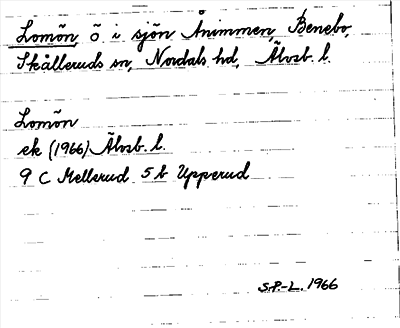 Lomön, ö i sjön Ånimmen, Benebo,
Skålleruds sn, Nordals hd, Älvsb. l.
Lomön
ek (1966) Älvsb. l.
9 C Mellerud 5 b Upperud
S.P.-L. 1966